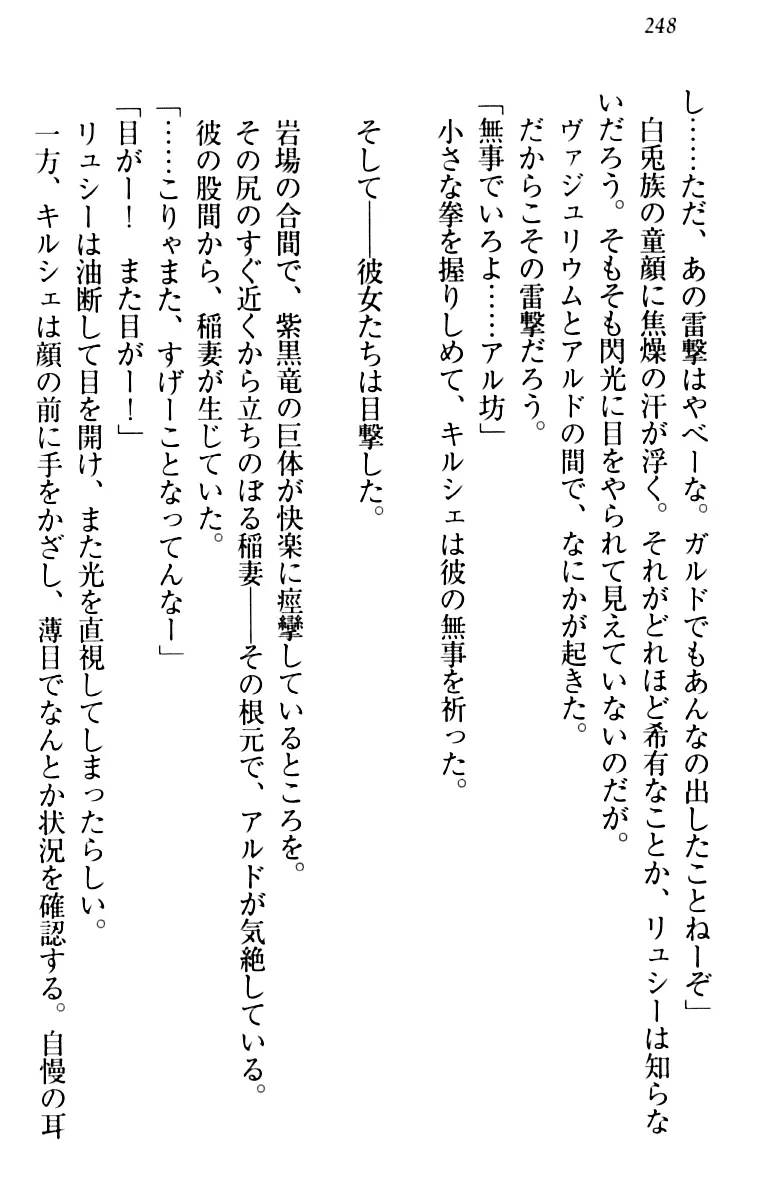 248
し……ただ、あの雷撃はやべーな。ガルドでもあんなの出したことねーぞ」
白兎族の童顔に焦燥の汗が浮く。それがどれほど希有なことか、リュシーは知らな
いだろう。そもそも閃光に目をやられて見えていないのだが。
ヴァジュリウムとアルドの間で、なにかが起きた。
だからこその雷撃だろう。
「無事でいろよ……アル坊」
小さな拳を握りしめて、キルシェは彼の無事を祈った。
そして――彼女たちは目撃した。
岩場の合間で、紫黒竜の巨体が快楽に痙攣しているところを。
その尻のすぐ近くから立ちのぼる稲妻――その根元で、アルドが気絶している。
彼の股間から、稲妻が生じていた。
「……こりゃまた、すげーことなってんなー」
「目がー！　また目がー！」
リュシーは油断して目を開け、また光を直視してしまったらしい。
一方、キルシェは顔の前に手をかざし、薄目でなんとか状況を確認する。自慢の耳